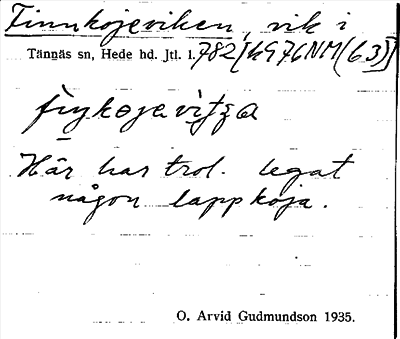 Finnkojeviken, vik i
Tännäs sn, Hede hd. Jtl. l. 782 [49976NM(63)]
Här har trol. legat
någon lappkoja.
O. Arvid Gudmundson 1935.